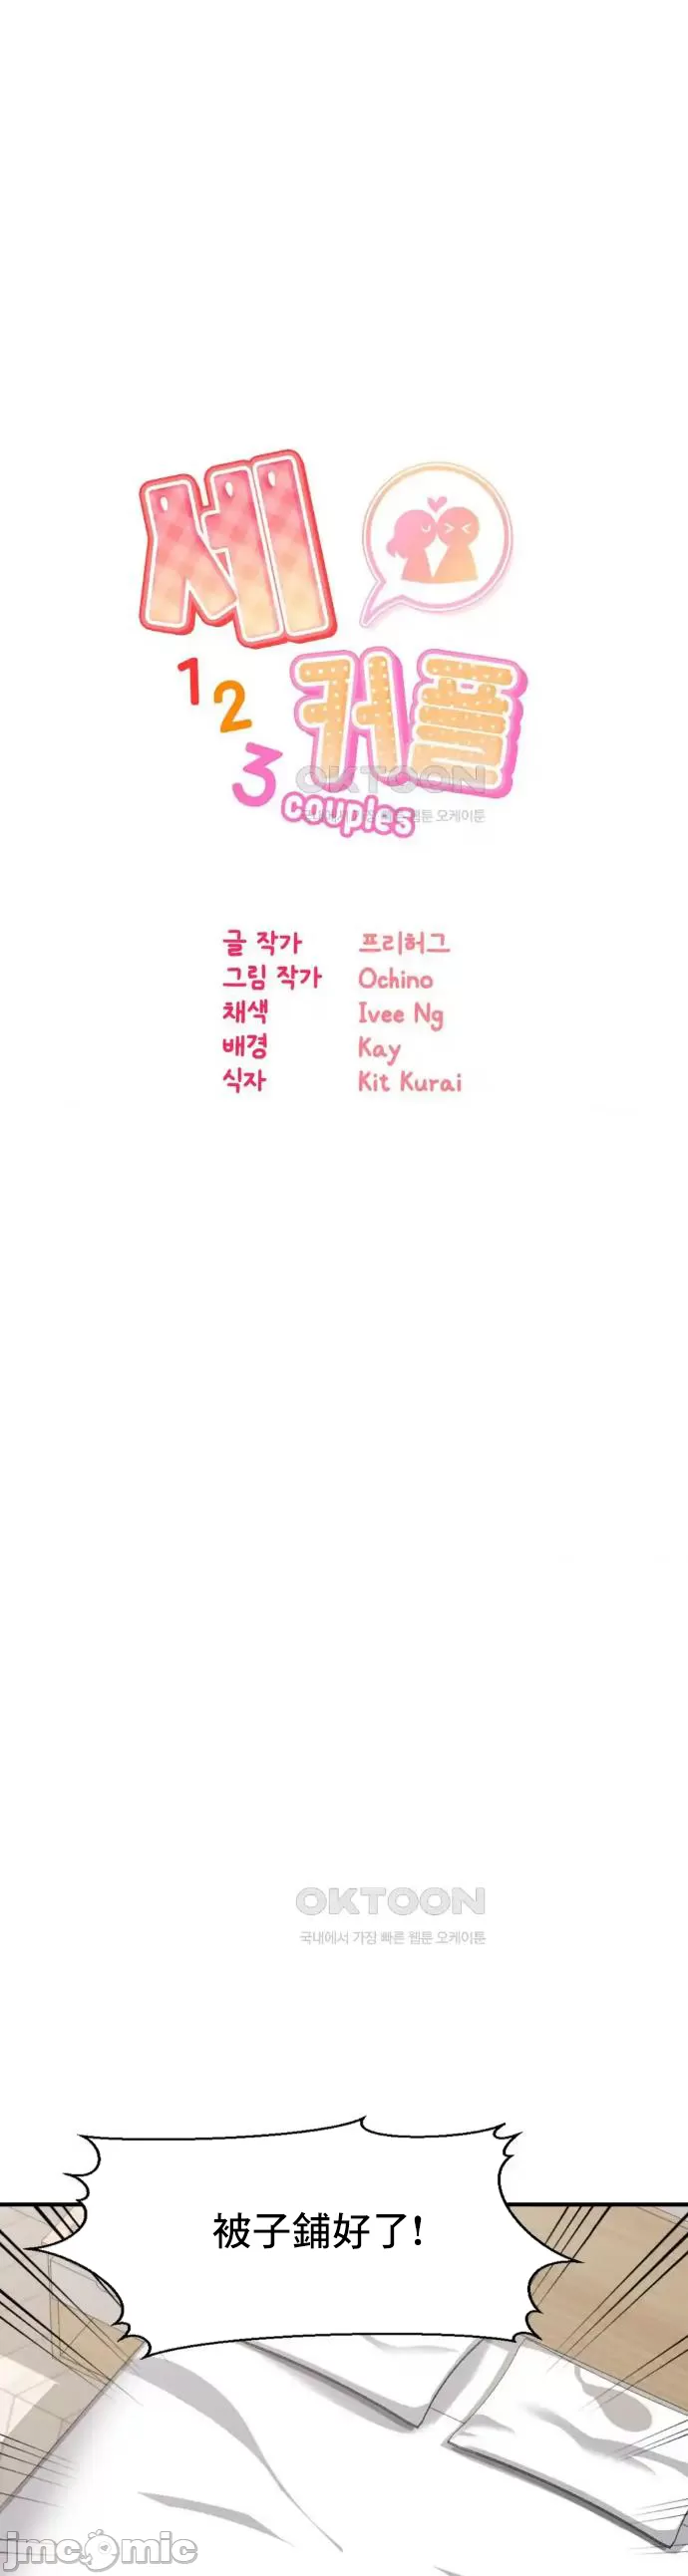 세
1 2 3
커플
OKTOON
couples
국내에서 가장 빠른 웹툰 오케이툰
글 작가 프리허그
그림 작가 Ochino
채색 Ivee Ng
배경 Kay
식자 Kit Kurai
OKTOON
국내에서 가장 빠른 웹툰 오케이툰
被子鋪好了!
jmcomic